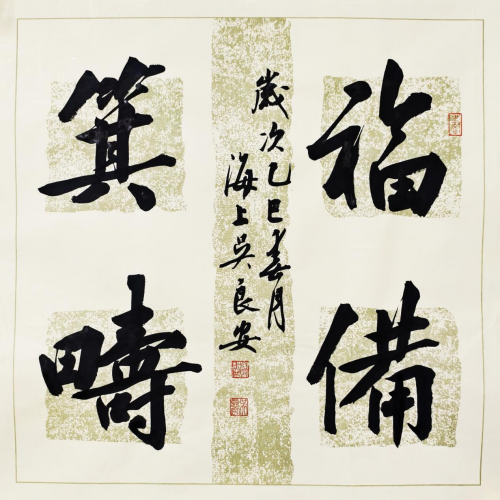 福備
箕疇
歲次乙巳春月
海上吳良安